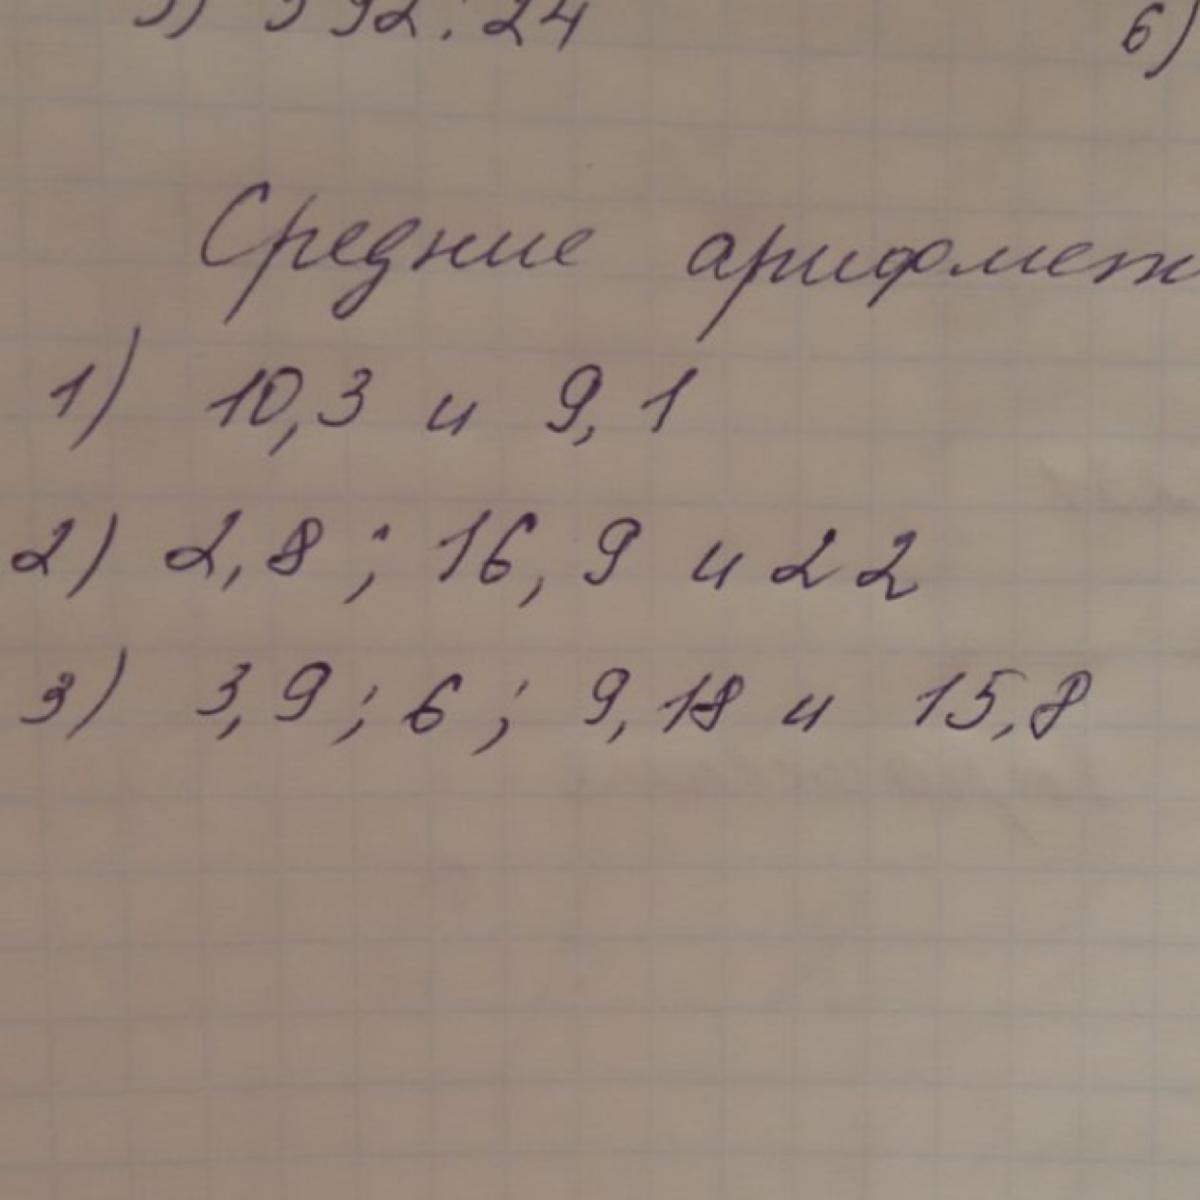 392:24
6)
Средние арифмет
1) 10,3 и 9,1
2) 2,8; 16,9 и 22
3) 3,9; 6; 9,18 и 15,8